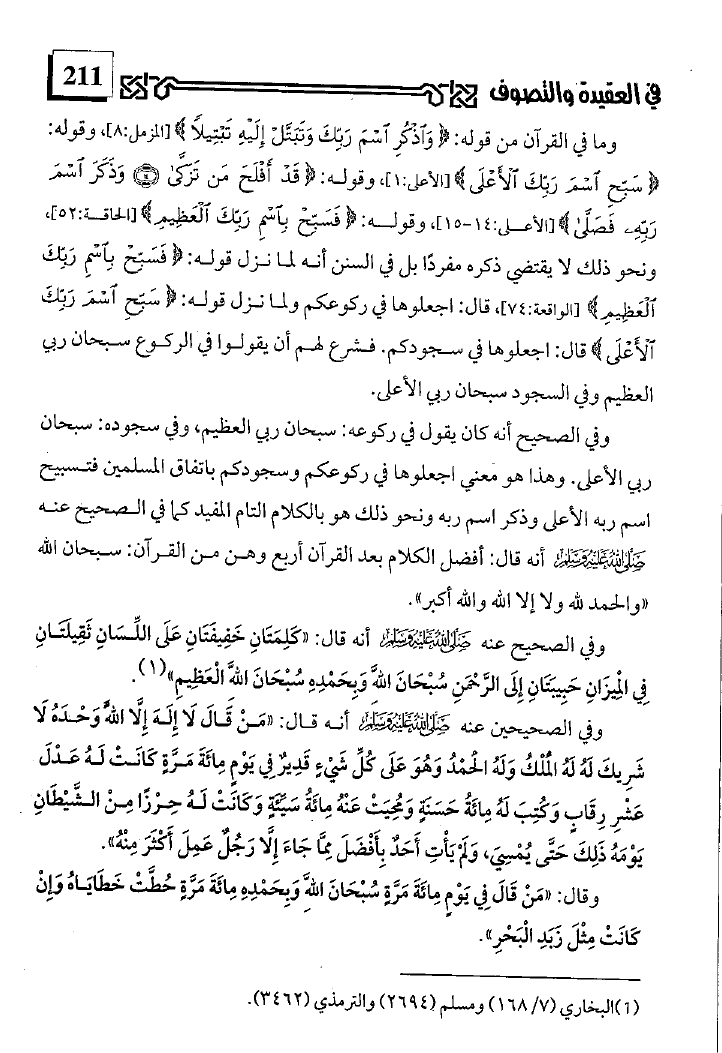 في العقيدة والتصوف 211
وما في القرآن من قوله: ﴿ وَٱذْكُرِ ٱسْمَ رَبِّكَ وَتَبَتَّلْ إِلَيْهِ تَبْتِيلًا ﴾ [المزمل:٨]، وقوله:
﴿ سَبِّحِ ٱسْمَ رَبِّكَ ٱلْأَعْلَى ﴾ [الأعلى:١]، وقوله: ﴿ قَدْ أَفْلَحَ مَن تَزَكَّىٰ ۝١٤ وَذَكَرَ ٱسْمَ
رَبِّهِۦ فَصَلَّىٰ ﴾ [الأعلى:١٤-١٥]، وقوله: ﴿ فَسَبِّحْ بِٱسْمِ رَبِّكَ ٱلْعَظِيمِ ﴾ [الحاقة:٥٢]،
ونحو ذلك لا يقتضي ذكره مفردًا بل في السنن أنه لما نزل قوله: ﴿ فَسَبِّحْ بِٱسْمِ رَبِّكَ
ٱلْعَظِيمِ ﴾ [الواقعة:٧٤]، قال: اجعلوها في ركوعكم ولما نزل قوله: ﴿ سَبِّحِ ٱسْمَ رَبِّكَ
ٱلْأَعْلَى ﴾ قال: اجعلوها في سجودكم. فشرع لهم أن يقولوا في الركوع سبحان ربي
العظيم وفي السجود سبحان ربي الأعلى.
وفي الصحيح أنه كان يقول في ركوعه: سبحان ربي العظيم، وفي سجوده: سبحان
ربي الأعلى. وهذا هو معني اجعلوها في ركوعكم وسجودكم باتفاق المسلمين فتسبيح
اسم ربه الأعلى وذكر اسم ربه ونحو ذلك هو بالكلام التام المفيد كما في الصحيح عنه
صَلَّى اللَّهُ عَلَيْهِ وَسَلَّمَ أنه قال: أفضل الكلام بعد القرآن أربع وهن من القرآن: سبحان الله
«والحمد لله ولا إلا الله والله أكبر».
وفي الصحيح عنه صَلَّى اللَّهُ عَلَيْهِ وَسَلَّمَ أنه قال: «كَلِمَتَانِ خَفِيفَتَانِ عَلَى اللِّسَانِ ثَقِيلَتَانِ
فِي الْمِيزَانِ حَبِيبَتَانِ إِلَى الرَّحْمَنِ سُبْحَانَ اللَّهِ وَبِحَمْدِهِ سُبْحَانَ اللَّهِ الْعَظِيمِ»(١).
وفي الصحيحين عنه صَلَّى اللَّهُ عَلَيْهِ وَسَلَّمَ أنه قال: «مَنْ قَالَ لَا إِلَهَ إِلَّا اللَّهُ وَحْدَهُ لَا
شَرِيكَ لَهُ لَهُ الْمُلْكُ وَلَهُ الْحَمْدُ وَهُوَ عَلَى كُلِّ شَيْءٍ قَدِيرٌ فِي يَوْمٍ مِائَةَ مَرَّةٍ كَانَتْ لَهُ عَدْلَ
عَشْرِ رِقَابٍ وَكُتِبَ لَهُ مِائَةُ حَسَنَةٍ وَمُحِيَتْ عَنْهُ مِائَةُ سَيِّئَةٍ وَكَانَتْ لَهُ حِرْزًا مِنَ الشَّيْطَانِ
يَوْمَهُ ذَلِكَ حَتَّى يُمْسِيَ، وَلَمْ يَأْتِ أَحَدٌ بِأَفْضَلَ مِمَّا جَاءَ إِلَّا رَجُلٌ عَمِلَ أَكْثَرَ مِنْهُ».
وقال: «مَنْ قَالَ فِي يَوْمٍ مِائَةَ مَرَّةٍ سُبْحَانَ اللَّهِ وَبِحَمْدِهِ مِائَةَ مَرَّةٍ حُطَّتْ خَطَايَاهُ وَإِنْ
كَانَتْ مِثْلَ زَبَدِ الْبَحْرِ».
(١) البخاري (١٦٨/٧) ومسلم (٢٦٩٤) والترمذي (٣٤٦٢).